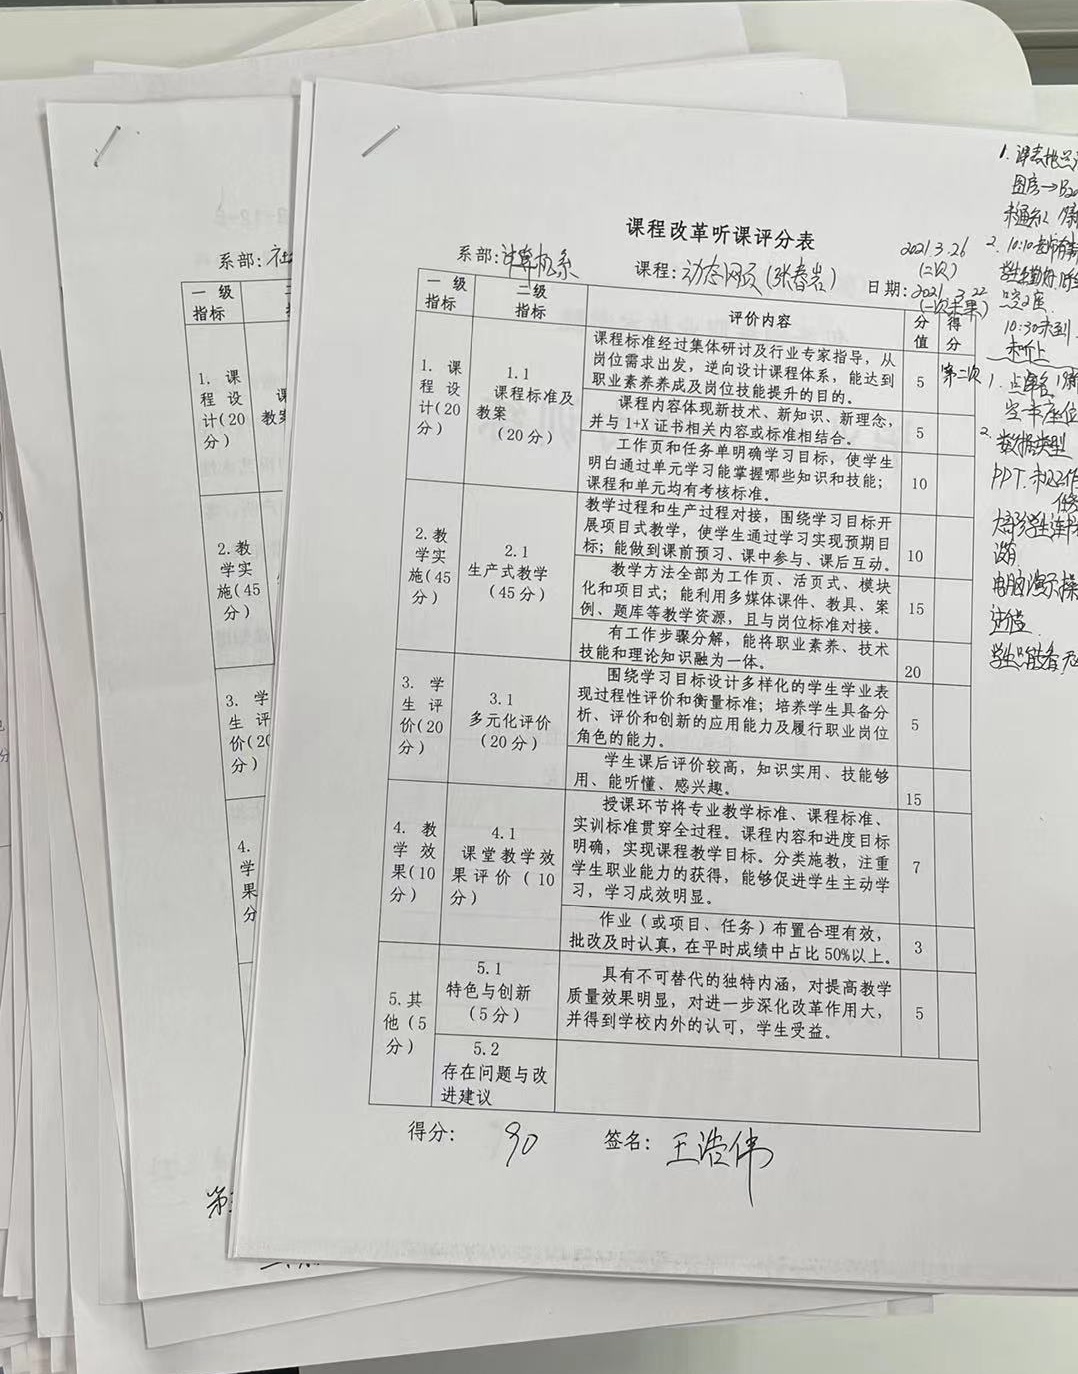 课程改革听课评分表
2021.3.26
(二次)
系部:计算机系
课程:动态网页(张春岩)
日期:2021.3.22
(一次未果)
一 级
指标
二级
指标
评价内容
分
值
得
分
1. 课
程 设
计(20
分)
1.1
课程标准及
教案
(20分)
课程标准经过集体研讨及行业专家指导，从
岗位需求出发，逆向设计课程体系，能达到
职业素养养成及岗位技能提升的目的。
5
第二次
课程内容体现新技术、新知识、新理念，
并与1+X证书相关内容或标准相结合。
5
工作页和任务单明确学习目标，使学生
明白通过单元学习能掌握哪些知识和技能；
课程和单元均有考核标准。
10
2.教
学实
施(45
分)
2.1
生产式教学
(45分)
教学过程和生产过程对接，围绕学习目标开
展项目式教学，使学生通过学习实现预期目
标；能做到课前预习、课中参与、课后互动。
10
教学方法全部为工作页、活页式、模块
化和项目式；能利用多媒体课件、教具、案
例、题库等教学资源，且与岗位标准对接。
15
有工作步骤分解，能将职业素养、技术
技能和理论知识融为一体。
20
3. 学
生 评
价(20
分)
3.1
多元化评价
(20分)
围绕学习目标设计多样化的学生学业表
现过程性评价和衡量标准；培养学生具备分
析、评价和创新的应用能力及履行职业岗位
角色的能力。
5
学生课后评价较高，知识实用、技能够
用、能听懂、感兴趣。
15
4. 教
学 效
果(10
分)
4.1
课堂教学效
果评价（10
分）
授课环节将专业教学标准、课程标准、
实训标准贯穿全过程。课程内容和进度目标
明确，实现课程教学目标。分类施教，注重
学生职业能力的获得，能够促进学生主动学
习，学习成效明显。
7
作业（或项目、任务）布置合理有效，
批改及时认真，在平时成绩中占比50%以上。
3
5.其
他（5
分）
5.1
特色与创新
(5分)
具有不可替代的独特内涵，对提高教学
质量效果明显，对进一步深化改革作用大，
并得到学校内外的认可，学生受益。
5
5.2
存在问题与改
进建议
得分: 90
签名: 王浩伟
10:30未到
未听上
2. 数据类型
系部:社
一 级
指标
1. 课
程 设
计(20
分)
教案
2.教
学实
施(45
分)
3. 学
生 评
价(20
分)
4.
学
果
分